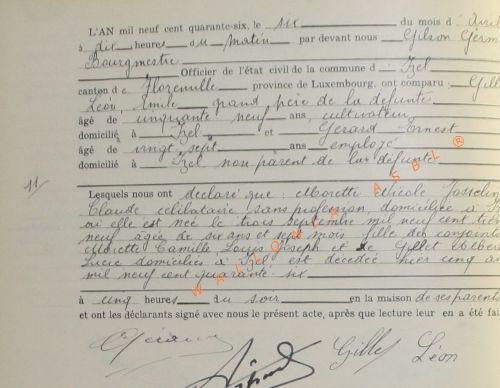 L'AN mil neuf cent quarante-six, le six du mois d'Avril
à dix heures du matin par devant nous Gilson Germ
Bourgmestre
Officier de l'état civil de la commune d'Izel
canton de Florenville province de Luxembourg, ont comparu : Gill
Léon, Emile, grand père de la défunte
âgé de cinquante neuf ans, cultivateur
domicilié à Izel et Gérard Ernest
âgé de vingt sept ans employé
domicilié à Izel non parent de la défunte
11
Lesquels nous ont déclaré que : Morette Nicole Josseline
Claude célibataire sans profession domiciliée à I
où elle est née le trois septembre mil neuf cent tre
neuf âgée de six ans et sept mois fille des conjoints
Morette Camille Louis Joseph et de Gillet
Lucie domiciliés à Izel est décédée hier cinq av
mil neuf cent quarante six
à cinq heures du soir en la maison de ses parents
et ont les déclarants signé avec nous le présent acte, après que lecture leur en a été fai
Gillet Léon
WALLONIA ASBL ®